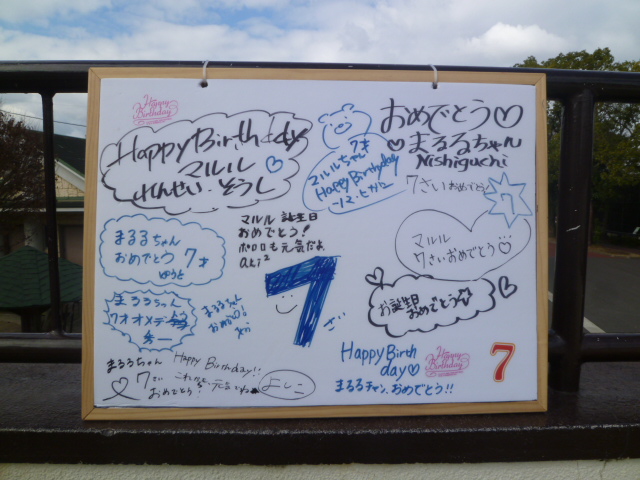 Happy
Birthday
Happy Birthday
マルル
れんせい・そうし
マルルちゃん 7才
Happy Birthday
おめでとう♡
まるるちゃん
Nishiguchi
7さいおめでとう
7
まるるちゃん
おめでとう 7才
ゆうと
マルル 誕生日
おめでとう!
ポロロも元気だよ
aki²
マルル
7さいおめでとう♡
お誕生日
おめでとう☆
まるるちゃん
7才オメデトウ
まるるちゃん
おめでとう!
7
まるるちゃん
7さい
おめでとう!
Happy Birthday!!
これからも元気でね
よしこ
Happy Birth
day♡
まるるチャン、おめでとう!!
Happy
Birthday
7